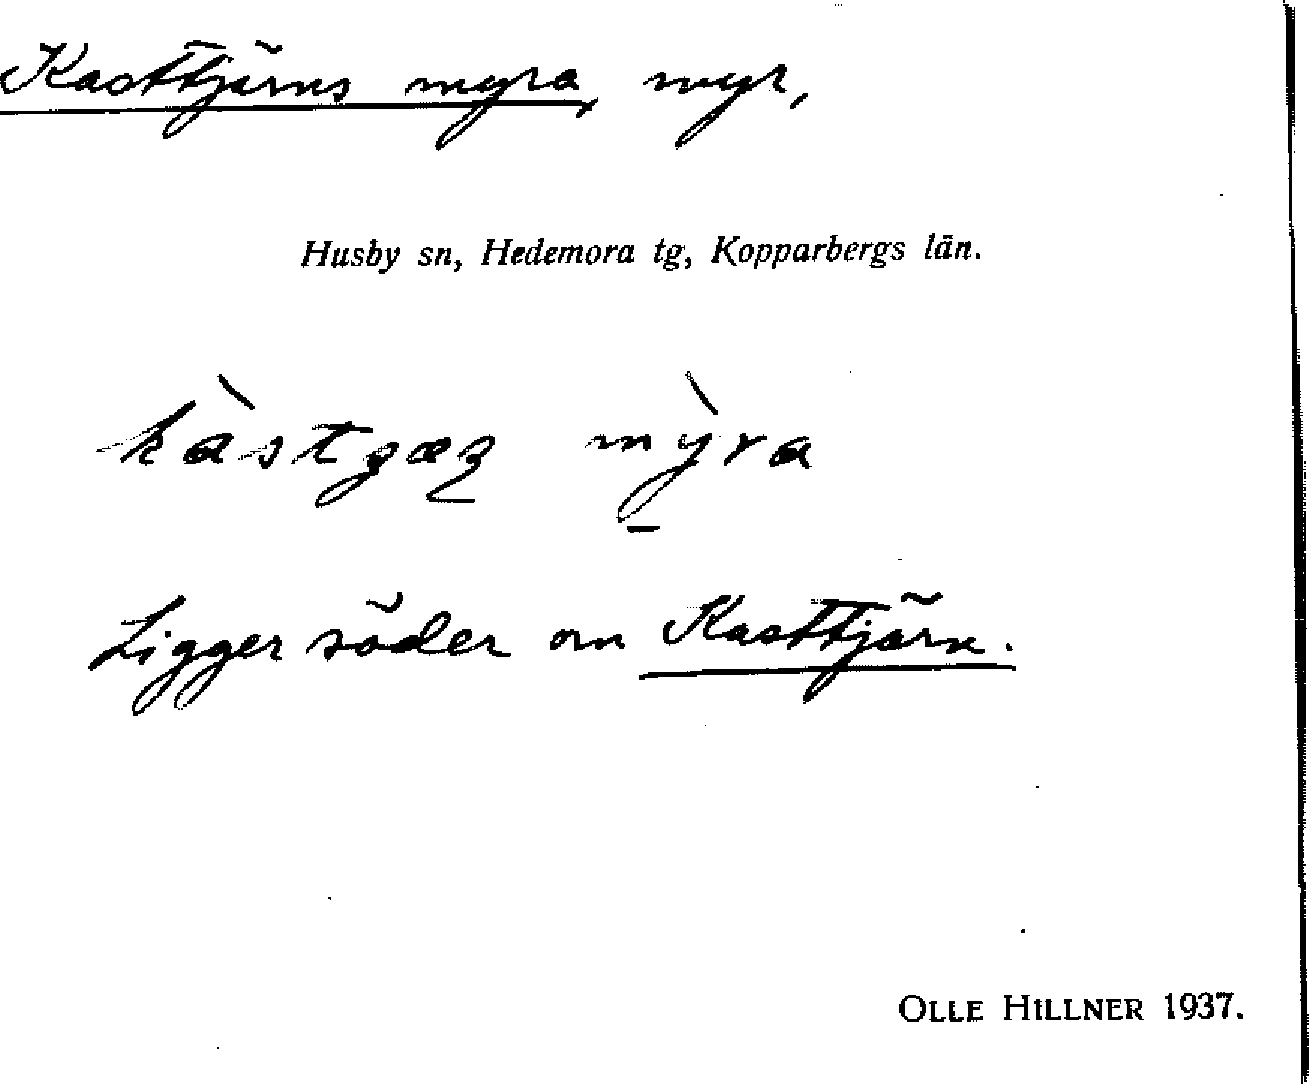 Kasttjärns myra, myr,
Husby sn, Hedemora tg, Kopparbergs län.
myra
Ligger söder om Kasttjärn.
OLLE HILLNER 1937.